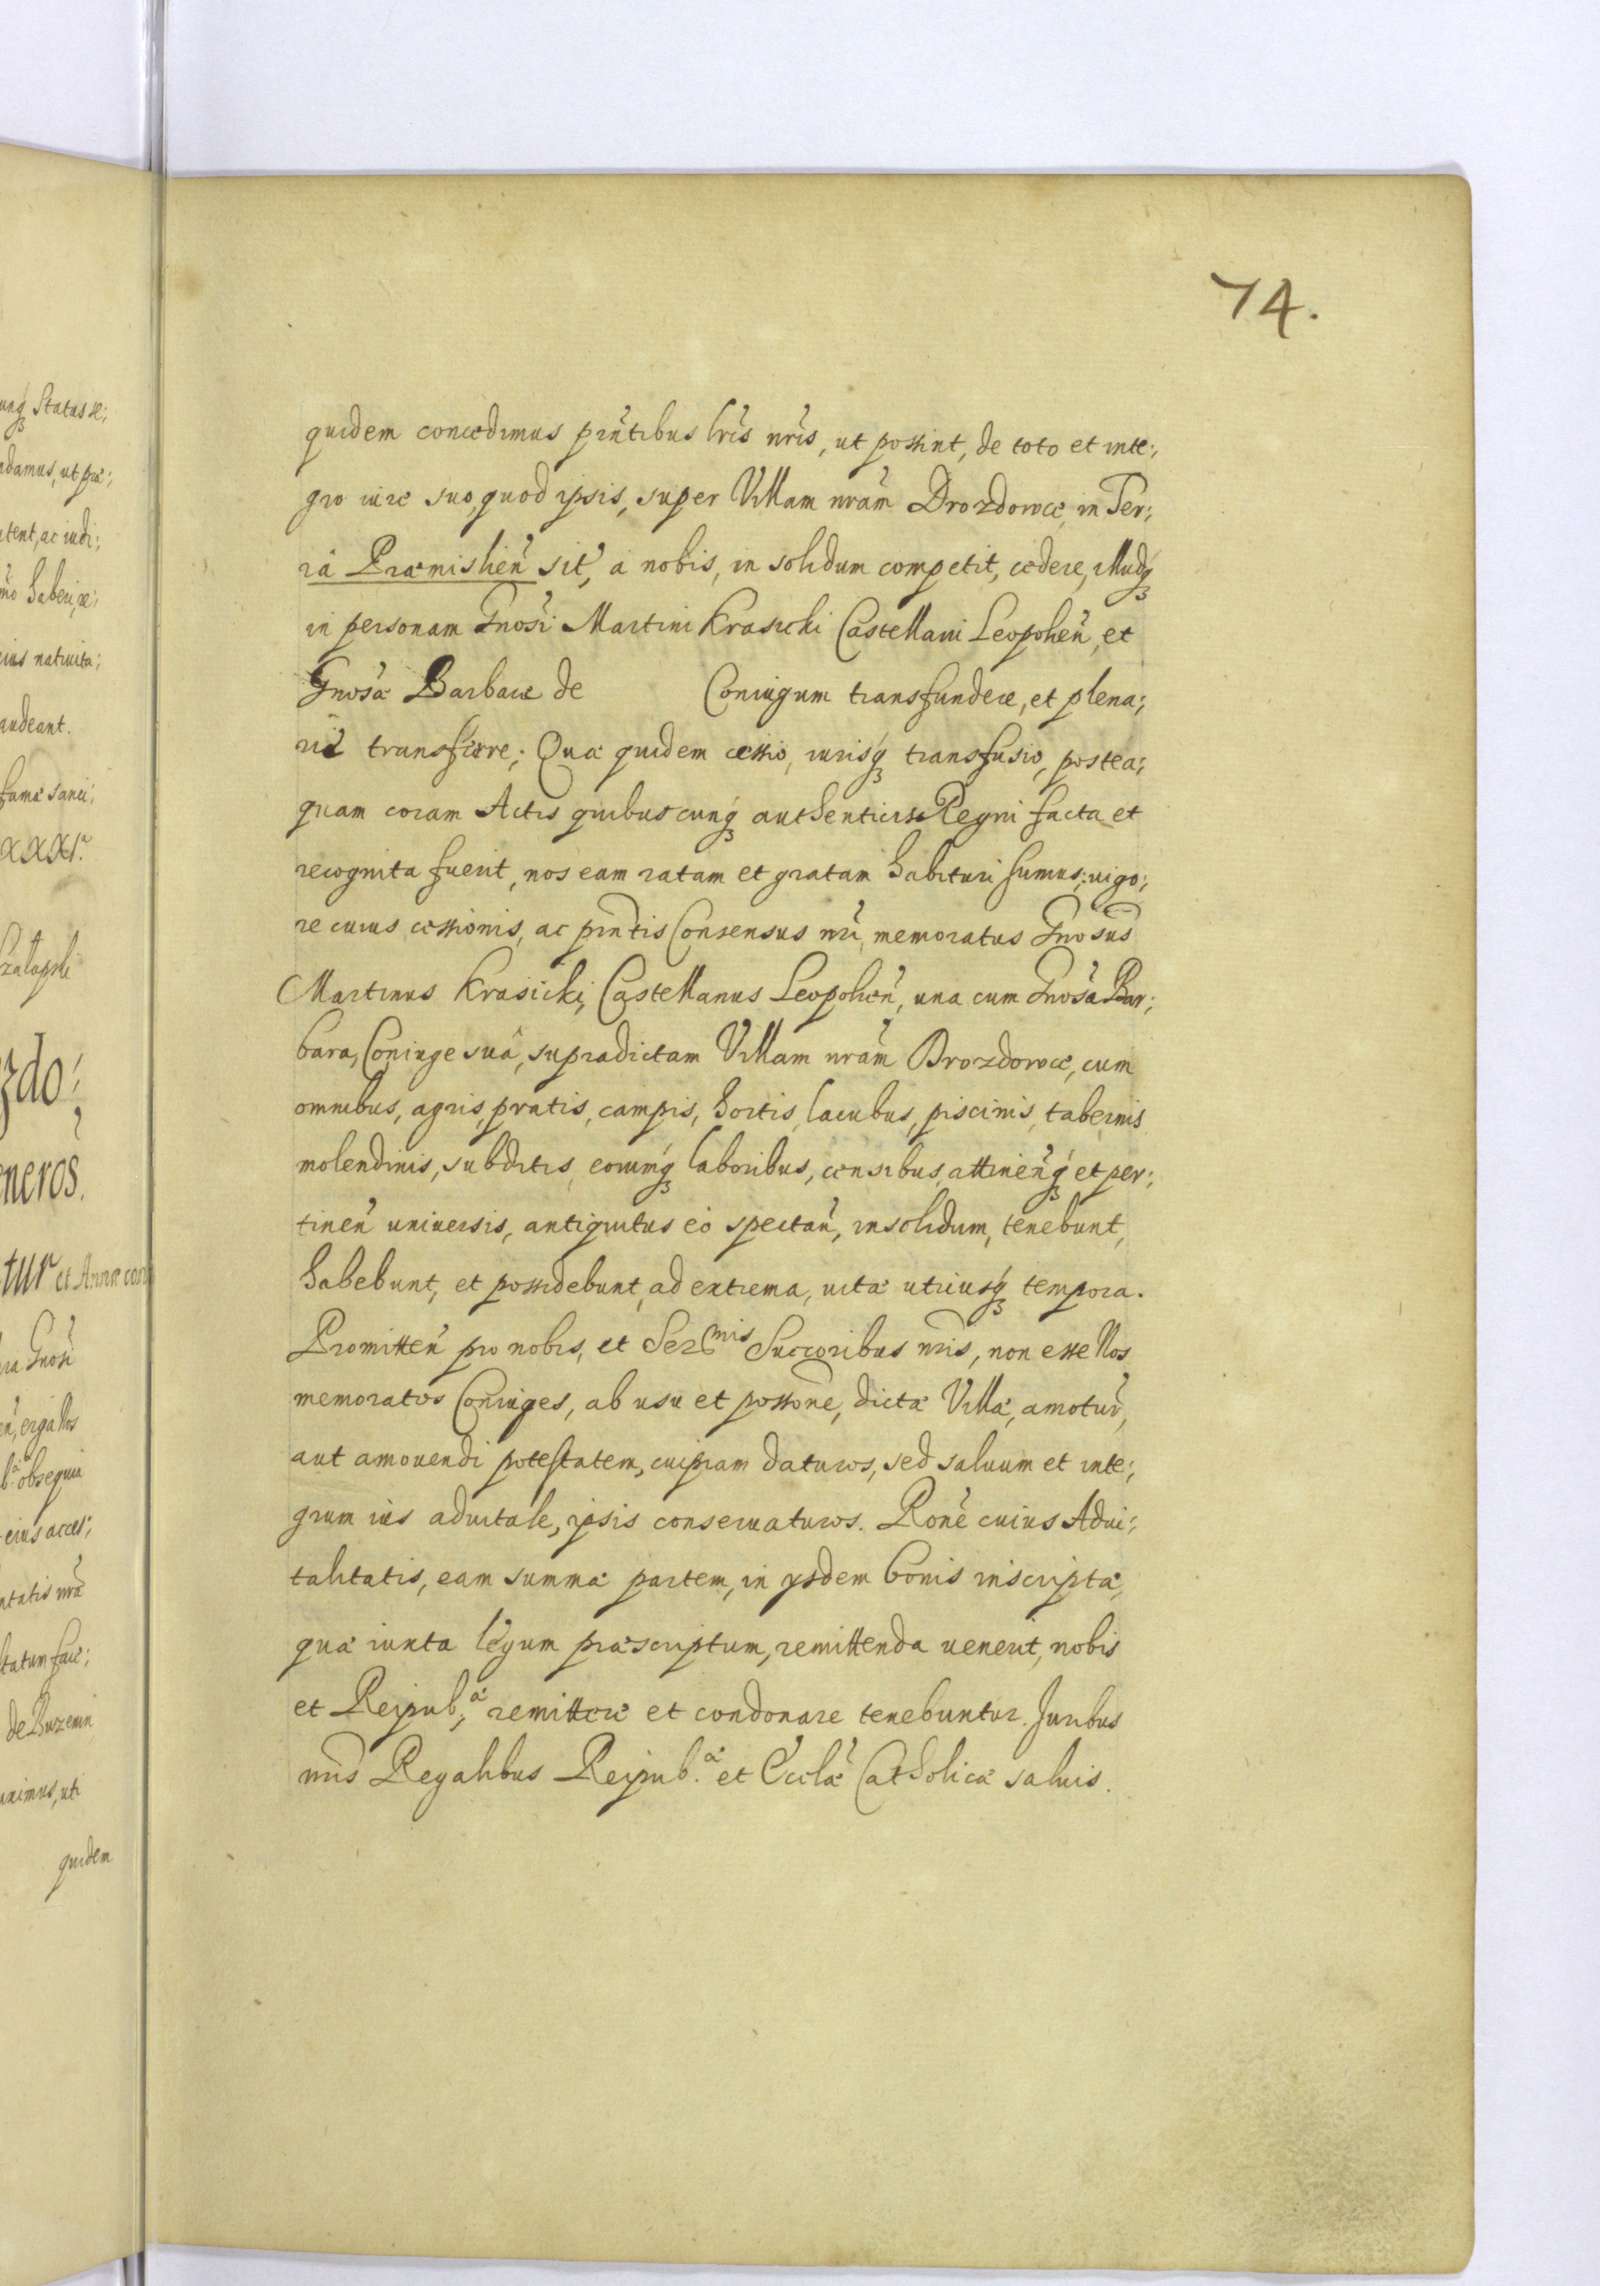 74.
quidem concedimus pr̃ntibus lr̃is nr̃is, ut possint, de toto et inte;
gro iure suo, quod ipsis, super Villam nr̃am Drozdowce, in Ter;
râ Præmislien̄ sit̄, à nobis, in solidum competit, cedere, illudq́;
in personam Gnosi Martini Krasicki Castellani Leopolien̄, et
Gnosæ Barbaræ de Coniugum transfundere, et plena;
riè transferre; Quæ quidem cessio, iurisq́; transfusio, postea;
quam coram Actis quibuscunq́; authenticis Regni facta et
recognita fuerit, nos eam ratam et gratam habituri sumus; uigo;
re cuius cessionis, ac pr̃ntis Consensus nr̃i, memoratus Gnosus
Martinus Krasicki, Castellanus Leopolien̄, una cum Gnosa Bar;
bara, Coniuge suâ, supradictam Villam nr̃am Drozdowce, cum
omnibus, agris, pratis, campis, hortis, lacubus, piscinis, tabernis
molendinis, subditis, eorumq́; laboribus, censibus, attinen̄q́; et per;
tinen̄ universis, antiquitus eò spectan̄, in solidum, tenebunt,
habebunt, et possidebunt, ad extrema, uitæ utriusq́; tempora.
Promitten̄ pro nobis, et Ser^mis Succoribus nr̃is, non esse Nos
memoratos Coniuges, ab usu et possone, dictæ Villæ, amotur̄,
aut amouendi potestatem, cuipiam daturos, sed saluum et inte;
grum ius aduitale, ipsis conseruaturos. Rone cuius Adui;
talitatis, eam summæ partem, in ysdem bonis inscriptæ,
quæ iuxta legum præscriptum, remittenda uenerit, nobis
et Reipub.æ remittere et condonare tenebuntur. Iuribus
nr̃is Regalibus Reipub.æ et Eccl̃æ Catholicæ saluis.
ung; Status se;
adamus, ut præ;
ac iudi;
haberi, re;
eius natiuita;
audeant.
famæ sanci;
zdo;
neros.
tur et Annæ con
ra Gnosi
erga Nos
obsequia
eius acces;
ntatis nr̃a
tatum face;
de Buzenin
uti
quidem